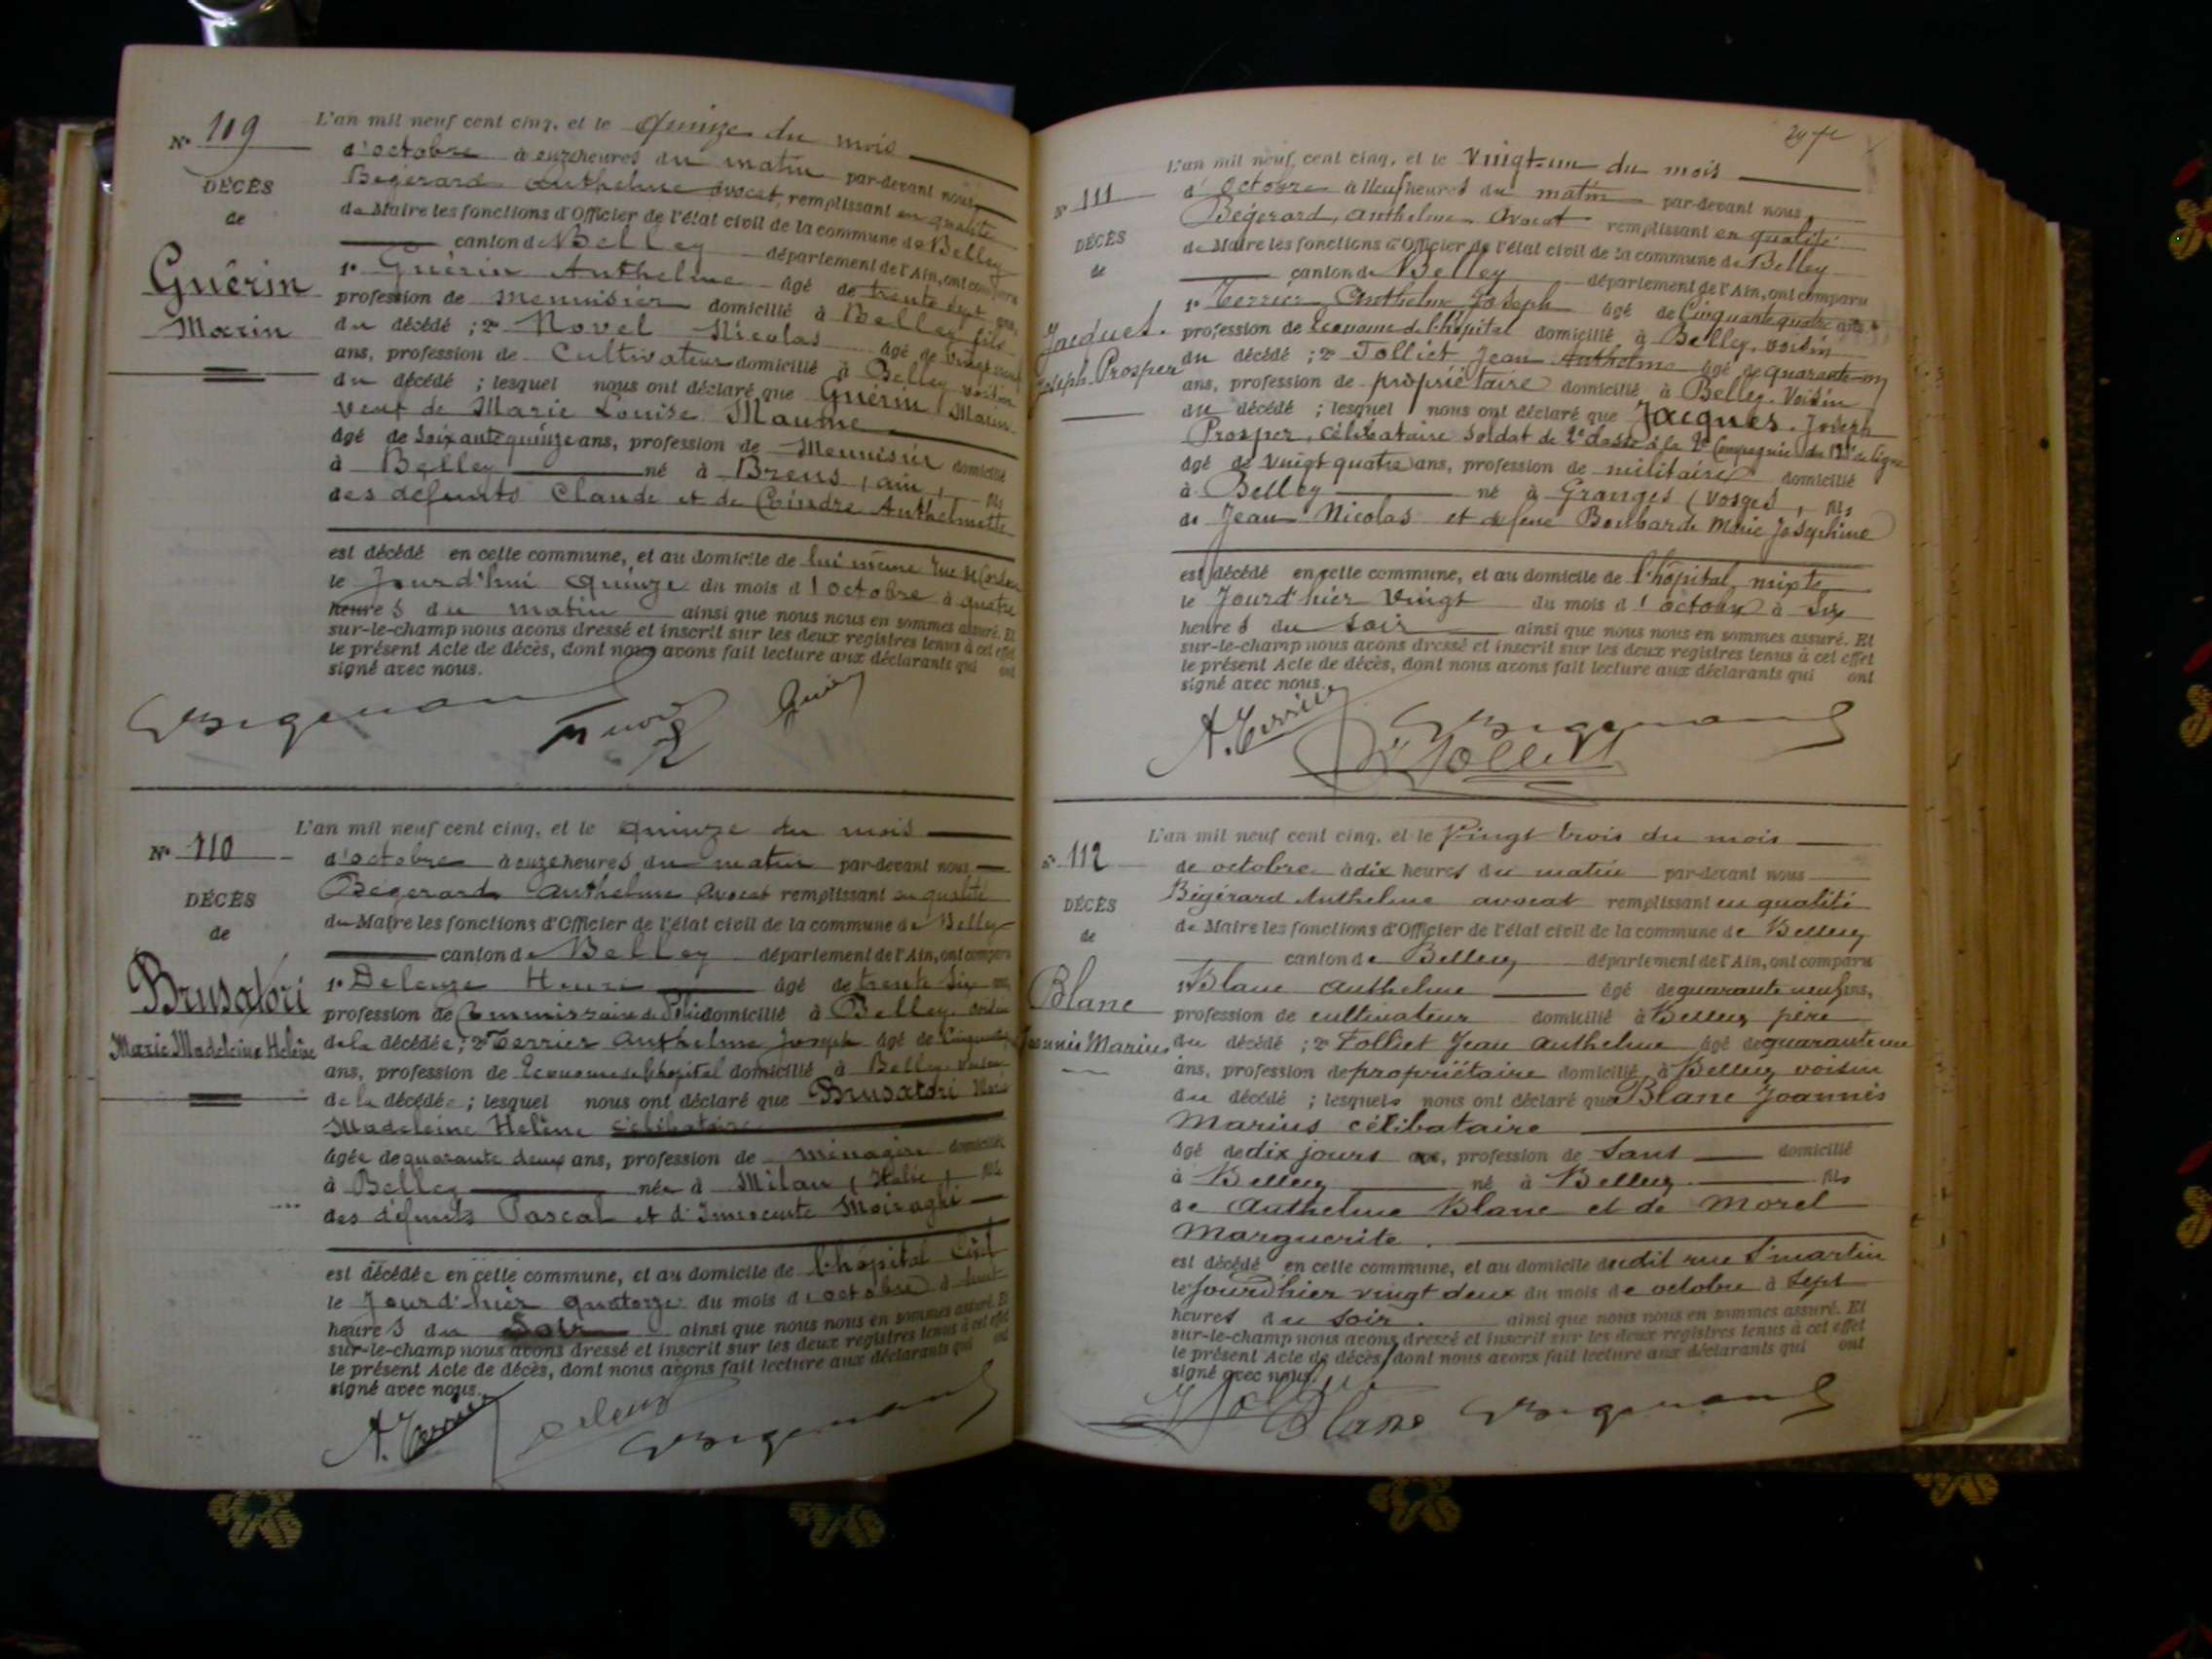 N° 109
DÉCÈS
de
Guérin
Marin
L'an mil neuf cent cinq, et le Quinze du mois
d'octobre à onze heures du matin par-devant nous
Bégerard Anthelme avocat, remplissant en qualité
de Maire les fonctions d'Officier de l'état civil de la commune de Belley
canton de Belley département de l'Ain, ont comparu
1° Guérin Anthelme âgé de trente sept ans,
profession de Menuisier domicilié à Belley fils
du décédé ; 2° Novel Nicolas âgé de
ans, profession de Cultivateur domicilié à Belley voisin
du décédé ; lesquel nous ont déclaré que Guérin Marin
veuf de Marie Louise Maume
âgé de Soixante quinze ans, profession de Menuisier domicilié
à Belley né à Brens, ain, fils
des défunts Claude et de Coindre Anthelmette
est décédé en cette commune, et au domicile de lui même rue
le Jourd'hui Quinze du mois d'octobre à quatre
heures du matin ainsi que nous nous en sommes assuré. Et
sur-le-champ nous avons dressé et inscrit sur les deux registres tenus à cet effet
le présent Acte de décès, dont nous avons fait lecture aux déclarants qui ont
signé avec nous.
N° 110
DÉCÈS
de
Brusatori
Marie Madeleine Helène
L'an mil neuf cent cinq, et le quinze du mois
d'octobre à onze heures du matin par-devant nous
Bégerard Anthelme Avocat remplissant en qualité
de Maire les fonctions d'Officier de l'état civil de la commune de Belley
canton de Belley département de l'Ain, ont comparu
1° Deleuze Henri âgé de trente six ans,
profession de Commissaire de Police domicilié à Belley. voisin
de la décédée ; 2° Terrier Anthelme Joseph âgé de
ans, profession de Econome de l'hopital domicilié à Belley. voisin
de la décédée ; lesquel nous ont déclaré que Brusatori Marie
Madeleine Helène célibataire
âgée de quarante deux ans, profession de ménagère domiciliée
à Belley née à Milan, (Italie), fille
des défunts Pascal et d'Innocente Moiraghi
est décédée en cette commune, et au domicile de l'hôpital Civil
le Jourd'hier quatorze du mois d'octobre à huit
heures du Soir ainsi que nous nous en sommes assuré. Et
sur-le-champ nous avons dressé et inscrit sur les deux registres tenus à cet effet
le présent Acte de décès, dont nous avons fait lecture aux déclarants qui ont
signé avec nous.
A. Terrier
N° 111
DÉCÈS
de
Jacquet.
Joseph. Prosper
L'an mil neuf cent cinq, et le Vingt-un du mois
d'Octobre à Neuf heures du matin par-devant nous
Bégerard, Anthelme. Avocat remplissant en qualité
de Maire les fonctions d'Officier de l'état civil de la commune de Belley
canton de Belley département de l'Ain, ont comparu
1° Terrier Anthelme Joseph âgé de Cinquante quatre ans,
profession de Econome de l'hôpital domicilié à Belley. voisin
du décédé ; 2° Tolliet Jean Anthelme âgé de quarante-un
ans, profession de propriétaire domicilié à Belley. Voisin
du décédé ; lesquel nous ont déclaré que Jacques. Joseph
Prosper, célibataire soldat de 2e classe à la 2e Compagnie du de ligne
âgé de vingt quatre ans, profession de militaire domicilié
à Belley né à Granges (Vosges), fils
de Jean Nicolas et de feue Boubarde Marie Joséphine
est décédé en cette commune, et au domicile de l'hôpital mixte
le Jourd'hier Vingt du mois d'octobre à Six
heures du soir ainsi que nous nous en sommes assuré. Et
sur-le-champ nous avons dressé et inscrit sur les deux registres tenus à cet effet
le présent Acte de décès, dont nous avons fait lecture aux déclarants qui ont
signé avec nous.
A. Terrier
Tolliet
N° 112
DÉCÈS
de
Blanc
Joannis Marius
L'an mil neuf cent cinq, et le Vingt trois du mois
de octobre à dix heures du matin par-devant nous
Bégérard Anthelme avocat remplissant en qualité
de Maire les fonctions d'Officier de l'état civil de la commune de Belley
canton de Belley département de l'Ain, ont comparu
1° Blanc Anthelme âgé de quarante neuf ans,
profession de cultivateur domicilié à Belley père
du décédé ; 2° Tolliet Jean Anthelme âgé de quarante une
ans, profession de propriétaire domicilié à Belley voisin
du décédé ; lesquels nous ont déclaré que Blanc Joannis
Marius célibataire
âgé de dix jours ans, profession de Sans domicilié
à Belley né à Belley fils
de Anthelme Blanc et de Morel
Marguerite.
est décédé en cette commune, et au domicile dudit rue St martin
le Jourd'hier vingt deux du mois de octobre à Sept
heures du soir. ainsi que nous nous en sommes assuré. Et
sur-le-champ nous avons dressé et inscrit sur les deux registres tenus à cet effet
le présent Acte de décès, dont nous avons fait lecture aux déclarants qui ont
signé avec nous.
Blanc